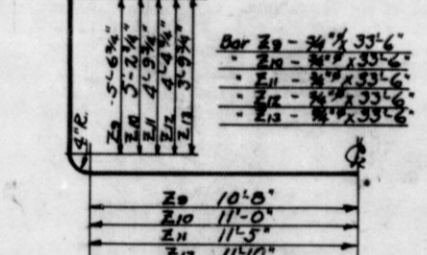 Z9 - 5'-6¾"
Z10 5'-2¼"
Z11 4'-9¾"
Z12 4'-4¾"
Z13 3'-9¾"
4"R.
Bar Z9 - ¾"⌀ x 33'-6"
" Z10 - ¾"⌀ x 33'-6"
" Z11 - ¾"⌀ x 33'-6"
" Z12 - ¾"⌀ x 33'-6"
" Z13 - ¾"⌀ x 33'-6"
Z9 10'-8"
Z10 11'-0"
Z11 11'-5"
Z12 11'-10"